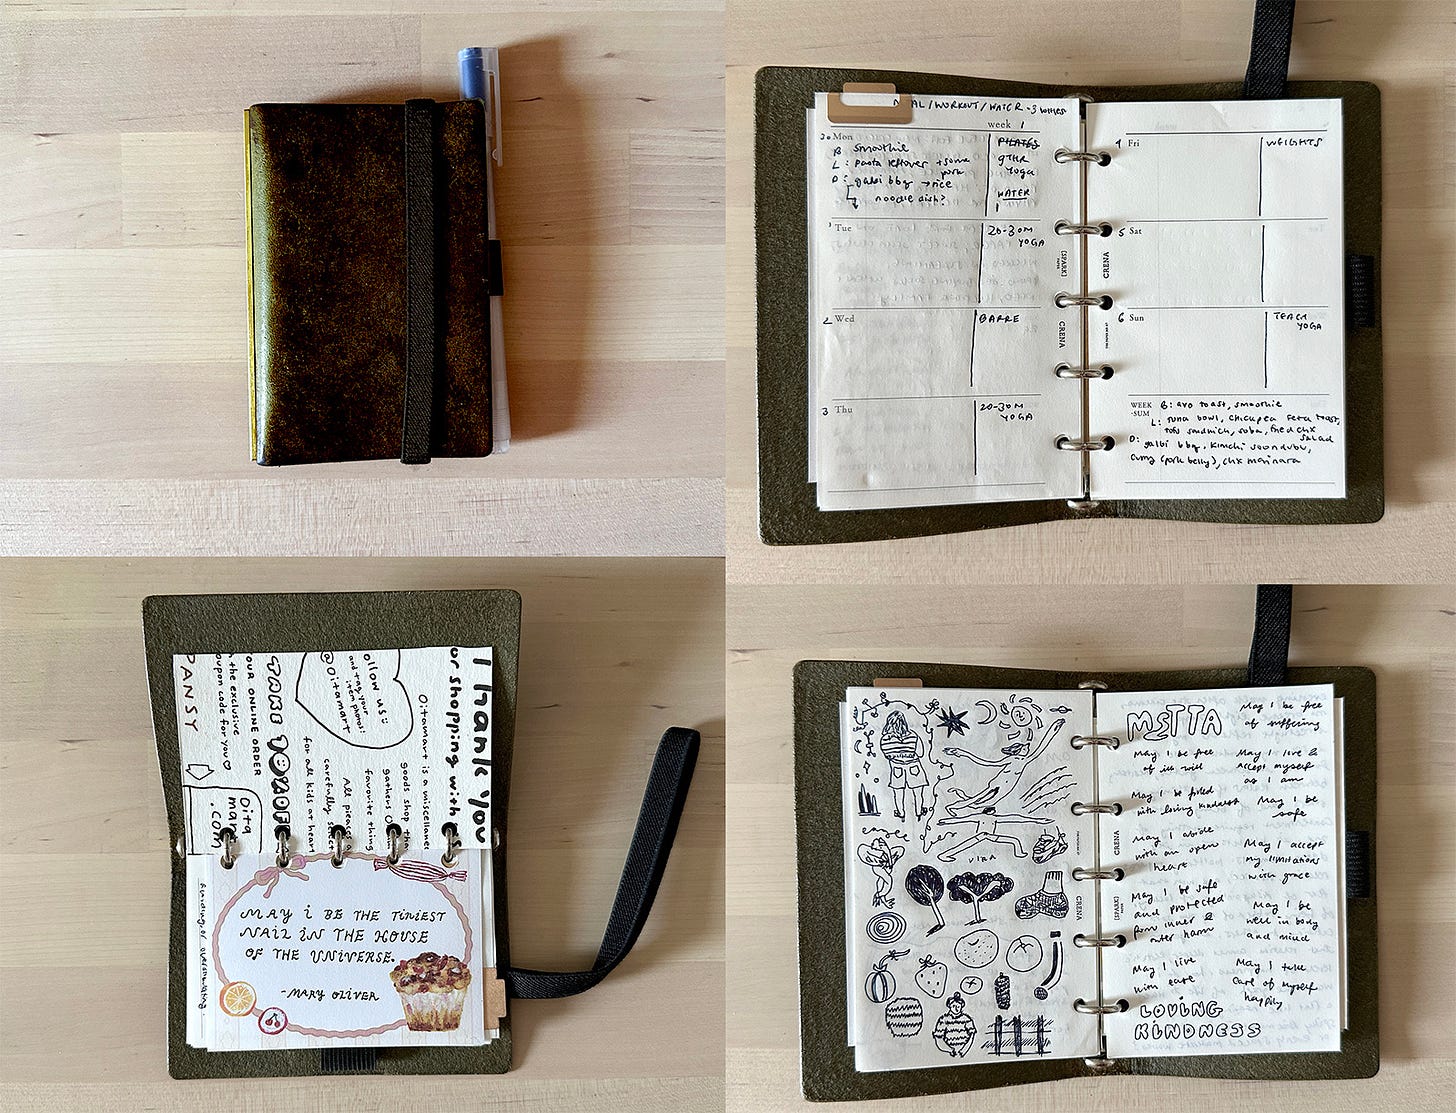 MEAL/WORKOUT/WATER - 3 WHILES
week 1
30 Mon
B smoothie
L: pasta leftover + some pork
D: galbi bbq → rice
noodle dish?
PILATES
9THR
Yoga
WATER
1
1 Tue
20-30M
YOGA
2 Wed
BARRE
3 Thu
20-30M
YOGA
[SPARK]
CRENA
CRENA
4 Fri
WEIGHTS
5 Sat
6 Sun
TEACH
YOGA
WEEK
-SUM
B: avo toast, smoothie
L: tuna bowl, chickpea feta toast,
tofu sandwich, soba, fried chx
salad
D: galbi bbq, kimchi soondubu,
curry (pork belly), chx marinara
Thank you
for shopping with us
Oitamart is a miscellaneous
goods shop that
gathers
favorite thing
All pieces
carefully select
for all kids at heart
Follow us :)
and tag your
item photos!
@Oitamart
TAKE 10% OFF
YOUR ONLINE ORDER
the exclusive
coupon code for you ♡
PANSY
Oita
mart
.com
MAY i BE THE TINIEST
NAIL IN THE HOUSE
OF THE UNIVERSE.
-MARY OLIVER
VIRA
CRENA
METTA
May I be free
of suffering
May I be free
of ill will
May I live &
accept myself
as I am
May I be filled
with loving kindness
May I be
safe
May I abide
with an open
heart
May I accept
my limitations
with grace
May I be safe
and protected
from inner &
outer harm
May I be
well in body
and mind
May I live
with ease
May I take
care of myself
happily
LOVING
KINDNESS
CRENA
[SPARK]